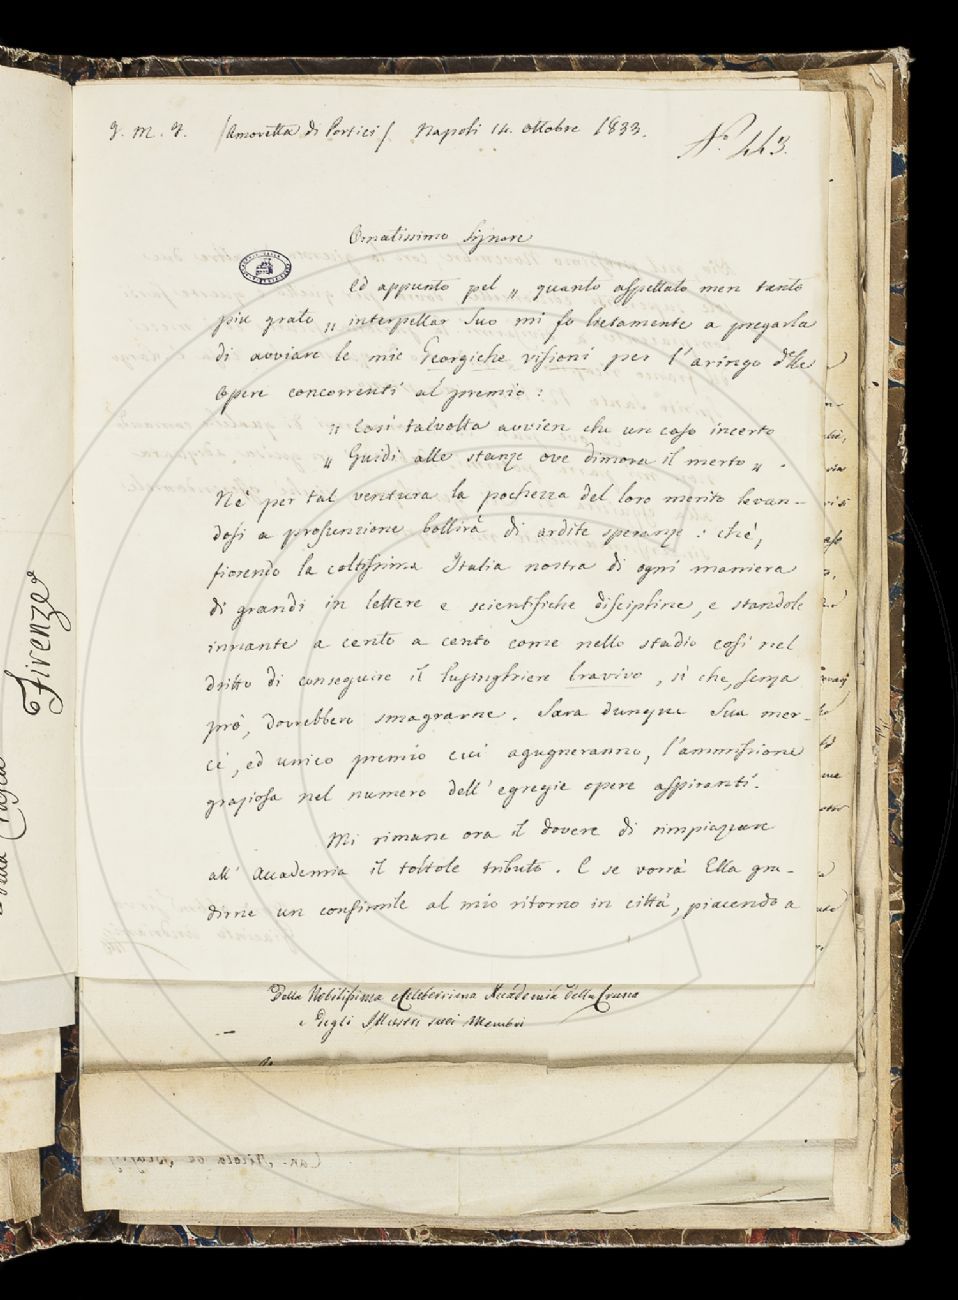 J. M. J. /Amoretta di Portici/. Napoli 14. ottobre 1833.
N.° 443.
Ornatissimo Signore
Ed appunto pel „ quanto aspettato men tanto
più grato „ interpellar Suo mi fo lietamente a pregarla
di avviare le mie Georgiche visioni per l'aringo delle
opere concorrenti al premio :
„ Così talvolta avvien che un caso incerto
„ Guidi alle stanze ove dimora il merto „ .
Nè per tal ventura la pochezza del loro merito levan-
dosi a prosunzione bollirà di ardite speranze : chè,
fiorendo la coltissima Italia nostra di ogni maniera
di grandi in lettere e scientifiche discipline, e standole
innante a cento a cento come nello stadio così nel
dritto di conseguire il lusinghiere bravivo, sì che, senza
prò, dovrebbero smagrarne. Sarà dunque Sua mer-
cè, ed unico premio cui agugneranno, l'ammissione
graziosa nel numero dell' egregie opere aspiranti.
Mi rimane ora il dovere di rimpiazzare
all' Accademia il toltole tributo. E se vorrà Ella gra-
dirne un consimile al mio ritorno in città, piacendo a
Della Nobilissima e Celeberrima Accademia della Crusca
e degli Illustri suoi Membri
Firenze